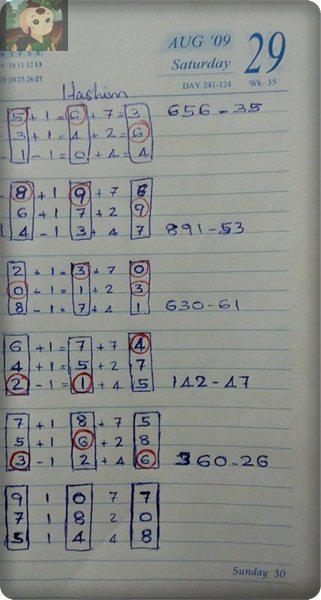 9 10 11 12 13
23 24 25 26 27
AUG '09
29
Saturday
DAY 241-124 Wk- 35
Hashim
5 + 1 = 6 + 7 = 3 656 - 35
3 + 1 = 4 + 2 = 6
1 - 1 = 0 + 4 = 4
8 + 1 9 + 7 6
6 + 1 7 + 2 9
4 - 1 3 + 4 7 891-53
2 + 1 = 3 + 7 0
0 + 1 = 1 + 2 3
8 - 1 = 7 + 4 1 630-61
6 + 1 = 7 + 7 4
4 + 1 = 5 + 2 7
2 - 1 = 1 + 4 5 142-47
7 + 1 8 + 7 5
5 + 1 6 + 2 8
3 - 1 2 + 4 6 360-26
9 1 0 7 7
7 1 8 2 0
5 1 4 4 8
Sunday 30